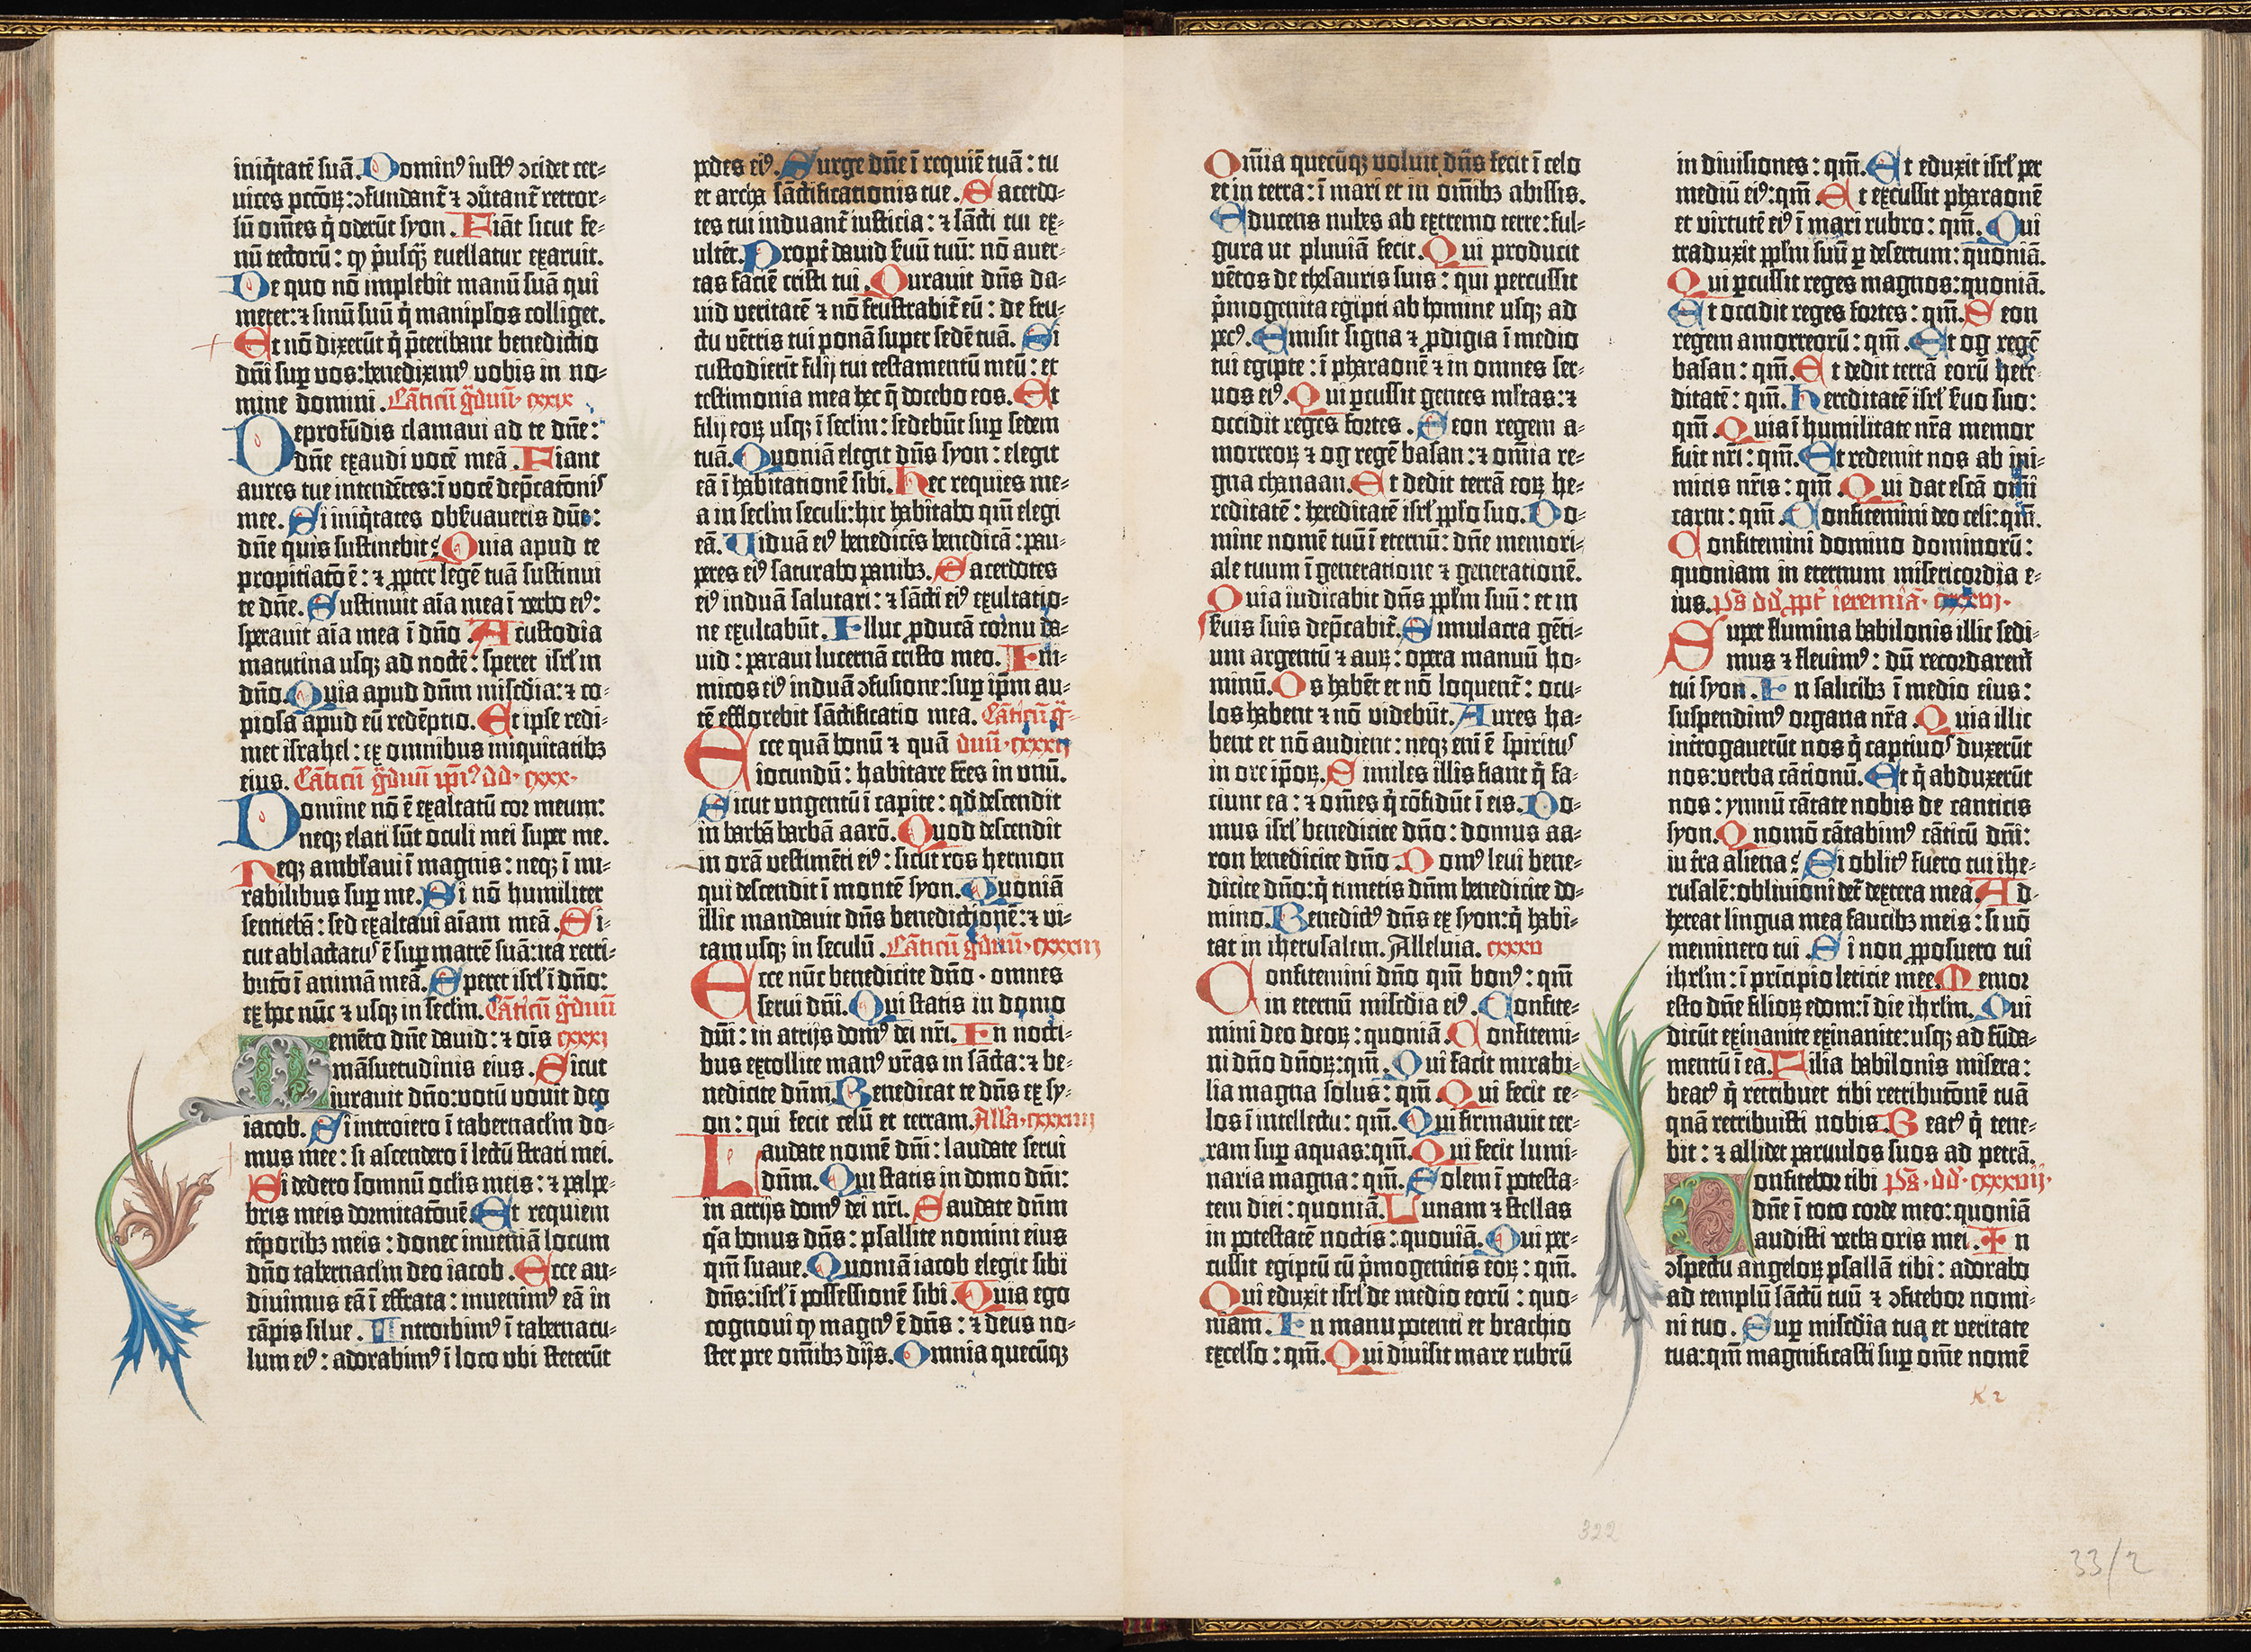 iniq̄tatē suā. Dominꝰ iustꝰ ↄcidet cer-
uices pctōꝝ: ↄfundant̄ ⁊ ↄūtant̄ retror-
sū om̄es q̄ oderūt syon. Fiāt sicut fe-
nū tectorū: qꝫ p̄usq̄ꝫ euellatur exaruit.
De quo nō implebit manū suā qui
metet: ⁊ sinū suū q̄ manip̄los colliget.
Et nō dixerūt q̄ p̄teribant benedictio
dn̄i sup̄ vos: benediximꝰ vobis in no-
mine domini. Cāticū g̈duū· cxxix
Deprofūdis clamaui ad te dn̄e:
dn̄e exaudi vocē meā. Fiant
aures tue intendētes: ī vocē dep̄cat̄onis
mee. Si iniq̄tates obẜuaueris dn̄e:
dn̄e quis sustinebit? Quia apud te
propitiato ē: ⁊ ꝓpter legē tuā sustinui
te dn̄e. Sustinuit aīa mea ī verbo eiꝰ:
sperauit aīa mea ī dn̄o. A custodia
matutina usqꝫ ad noctē: speret isrl̄ in
dn̄o. Quia apud dn̄m misc̄dia: ⁊ co-
piosa apud eū redēptio. Et ipse redi-
met israhel: ex omnibus iniquitatibꝫ
eius. Cāticū g̈duū ip̄iꝰ dd· cxxx·
Domine nō ē exaltatū cor meum:
neqꝫ elati sūt oculi mei super me.
Neqꝫ ambl̄aui ī magnis: neqꝫ ī mi-
rabilibus sup̄ me. Si nō humiliter
sentiebā: sed exaltaui aīam meā. Si-
cut ablactatus ē sup̄ matrē suā: ita retri-
but̄o ī animā meā. Speret isrl̄ ī dn̄o:
ex hoc nūc ⁊ usqꝫ in seclm̄. Cāticū g̈duū
Memēto dn̄e dauid: ⁊ om̄s cxxxi
māsuetudinis eius. Sicut
iurauit dn̄o: votū vouit deo
iacob. Si introiero ī tabernaclm̄ do-
mus mee: si ascendero ī lectū strati mei.
Si dedero somnū oclis meis: ⁊ palpe-
bris meis dormitat̄onē. Et requiem
tēporibꝫ meis: donec inueniā locum
dn̄o tabernaclm̄ deo iacob. Ecce au-
diuimus eā ī effrata: inuenimꝰ eā in
cāpis silue. Introibimꝰ ī tabernacu-
lum eiꝰ: adorabimꝰ ī loco ubi steterūt
pedes eiꝰ. Surge dn̄e ī requiē tuā: tu
et archa sāctificationis tue. Sacerdo-
tes tui induant̄ iusticia: ⁊ sācti tui ex-
ultēt. Propt̄ dauid ẜuū tuū: nō auer-
tas faciē cristi tui. Iurauit dn̄s da-
uid veritatē ⁊ nō frustrabit̄ eū: de fru-
ctu vētris tui ponā super sedē tuā. Si
custodierit filij tui testamentū meū: et
testimonia mea hec q̄ docebo eos. Et
filij eoꝝ usqꝫ ī seclm̄: sedebūt sup̄ sedem
tuā. Quoniā elegit dn̄s syon: elegit
eā ī habitationē sibi. Hec requies me-
a in seclm̄ seculi: hic habitabo qm̄ elegi
eā. Uiduā eiꝰ benedicēs benedicā: pau-
peres eiꝰ saturabo panibꝫ. Sacerdotes
eiꝰ induā salutari: ⁊ sācti eiꝰ exultatio-
ne exultabūt. Illuc ꝓducā cornu da-
uid: paraui lucernā cristo meo. Ini-
micos eiꝰ induā ↄfusione: sup̄ ip̄m au-
tē efflorebit sāctificatio mea. Cāticū g̈-
Ecce quā bonū ⁊ quā duū· cxxxij
iocundū: habitare fr̄es in unū.
Sicut ungentū ī capite: qd̄ descendit
in barbā barbā aarō. Quod descendit
in orā vestimēti eiꝰ: sicut ros hermon
qui descendit ī montē syon. Quoniā
illic mandauit dn̄s benedictionē: ⁊ vi-
tam usqꝫ in seculū. Cāticū g̈duū· cxxxiij
Ecce nūc benedicite dn̄o· omnes
serui dn̄i. Qui statis in domo
dn̄i: in atrijs domꝰ dei nr̄i. In nocti-
bus extollite manꝰ vr̄as in sācta: ⁊ be-
nedicite dn̄m. Benedicat te dn̄s ex sy-
on: qui fecit celū et terram. All'a· cxxxiiij
Laudate nomē dn̄i: laudate serui
dn̄m. Qui statis in domo dn̄i:
in atrijs domꝰ dei nr̄i. Laudate dn̄m
q̄a bonus dn̄s: psallite nomini eius
qm̄ suaue. Quoniā iacob elegit sibi
dn̄s: isrl̄ ī possessionē sibi. Quia ego
cognoui qꝫ magnꝰ ē dn̄s: ⁊ deus no-
ster pre om̄ibꝫ dijs. Omnia quecūqꝫ
Om̄ia quecūqꝫ voluit dn̄s fecit ī celo
et in terra: ī mari et in om̄ibꝫ abissis.
Educens nubes ab extremo terre: ful-
gura ut pluuiā fecit. Qui producit
vētos de thesauris suis: qui percussit
p̄mogenita egipti ab homine usqꝫ ad
pecꝰ. Emisit signa ⁊ ꝓdigia ī medio
tui egipte: ī pharaonē ⁊ in omnes ser-
uos eiꝰ. Qui p̄cussit gentes ml̄tas: ⁊
occidit reges fortes. Seon regem a-
morreoꝝ ⁊ og regē basan: ⁊ om̄ia re-
gna chanaan. Et dedit terrā eoꝝ he-
reditatē: hereditatē isrl̄ ppl̄o suo. Do-
mine nomē tuū ī eternū: dn̄e memori-
ale tuum ī generatione ⁊ generationē.
Quia iudicabit dn̄s ppl̄m suū: et in
ẜuis suis dep̄cabit̄. Simulacra gēti-
um argentū ⁊ auꝝ: opera manuū ho-
minū. Os habēt et nō loquent̄: ocu-
los habent ⁊ nō videbūt. Aures ha-
bent et nō audient: neqꝫ enī ē spiritus
in ore ip̄oꝝ. Similes illis fiant q̄ fa-
ciunt ea: ⁊ om̄es q̄ cōfidūt ī eis. Do-
mus isrl̄ benedicite dn̄o: domus aa-
ron benedicite dn̄o. Domꝰ leui bene-
dicite dn̄o: q̄ timetis dn̄m benedicite do-
mino. Benedictꝰ dn̄s ex syon: q̄ habi-
tat in iherusalem. Alleluia. cxxxv
Confitemini dn̄o qm̄ bonꝰ: qm̄
in eternū misc̄dia eiꝰ. Confite-
mini deo deoꝝ: quoniā. Confitemi-
ni dn̄o dn̄oꝝ: qm̄. Qui facit mirabi-
lia magna solus: qm̄. Qui fecit ce-
los ī intellectu: qm̄. Qui firmauit ter-
ram sup̄ aquas: qm̄. Qui fecit lumi-
naria magna: qm̄. Solem ī potesta-
tem diei: quoniā. Lunam ⁊ stellas
in potestatē noctis: quoniā. Qui per-
cussit egiptū cū p̄mogenitis eoꝝ: qm̄.
Qui eduxit isrl̄ de medio eorū: quo-
niam. In manu potenti et brachio
excelso: qm̄. Qui diuisit mare rubrū
in diuisiones: qm̄. Et eduxit isrl̄ per
mediū eiꝰ: qm̄. Et excussit pharaonē
et virtutē eiꝰ ī mari rubro: qm̄. Qui
traduxit ppl̄m suū p̄ desertum: quoniā.
Qui p̄cussit reges magnos: quoniā.
Et occidit reges fortes: qm̄. Seon
regem amorreorū: qm̄. Et og regē
basan: qm̄. Et dedit terrā eorū here-
ditatē: qm̄. Hereditatē isrl̄ ẜuo suo:
qm̄. Quia ī humilitate nr̄a memor
fuit nr̄i: qm̄. Et redemit nos ab ini-
micis nr̄is: qm̄. Qui dat escā om̄i
carni: qm̄. Confitemini deo celi: qm̄.
Confitemini domino dominorū:
quoniam in eternum misericordia e-
ius. Ps̄ dd̄ ꝓpt̄ ieremiā· cxxxvi·
Super flumina babilonis illic sedi-
mus ⁊ fleuimꝰ: dū recordarem̄
tui syon. In salicibꝫ ī medio eius:
suspendimꝰ organa nr̄a. Quia illic
int̄rogauerūt nos q̄ captiuos duxerūt
nos: verba cātionū. Et q̄ abduxerūt
nos: ymnū cātate nobis de canticis
syon. Quomō cātabimꝰ cāticū dn̄i:
in t̄ra aliena? Si oblitꝰ fuero tui ihe-
rusalē: obliuioni det̄ dextera mea. Ad-
hereat lingua mea faucibꝫ meis: si nō
meminero tui. Si non ꝓposuero tui
ihrl̄m: ī prīcipio leticie mee. Memor
esto dn̄e filioꝝ edom: ī die ihrl̄m. Qui
dicūt exinanite exinanite: usqꝫ ad fūda-
mentū ī ea. Filia babilonis misera:
beatꝰ q̄ retribuet tibi retribut̄onē tuā
quā retribuisti nobis. Beatꝰ q̄ tene-
bit: ⁊ allidet paruulos suos ad petrā.
Confitebor tibi Ps̄· dd̄· cxxxvij·
dn̄e ī toto corde meo: quoniā
audisti verba oris mei. In
ↄspectu angeloꝝ psallā tibi: adorabo
ad templū sāctū tuū ⁊ ↄfitebor nomi-
ni tuo. Sup̄ misc̄dia tua et veritate
tua: qm̄ magnificasti sup̄ om̄e nomē
K 2
322
33/2